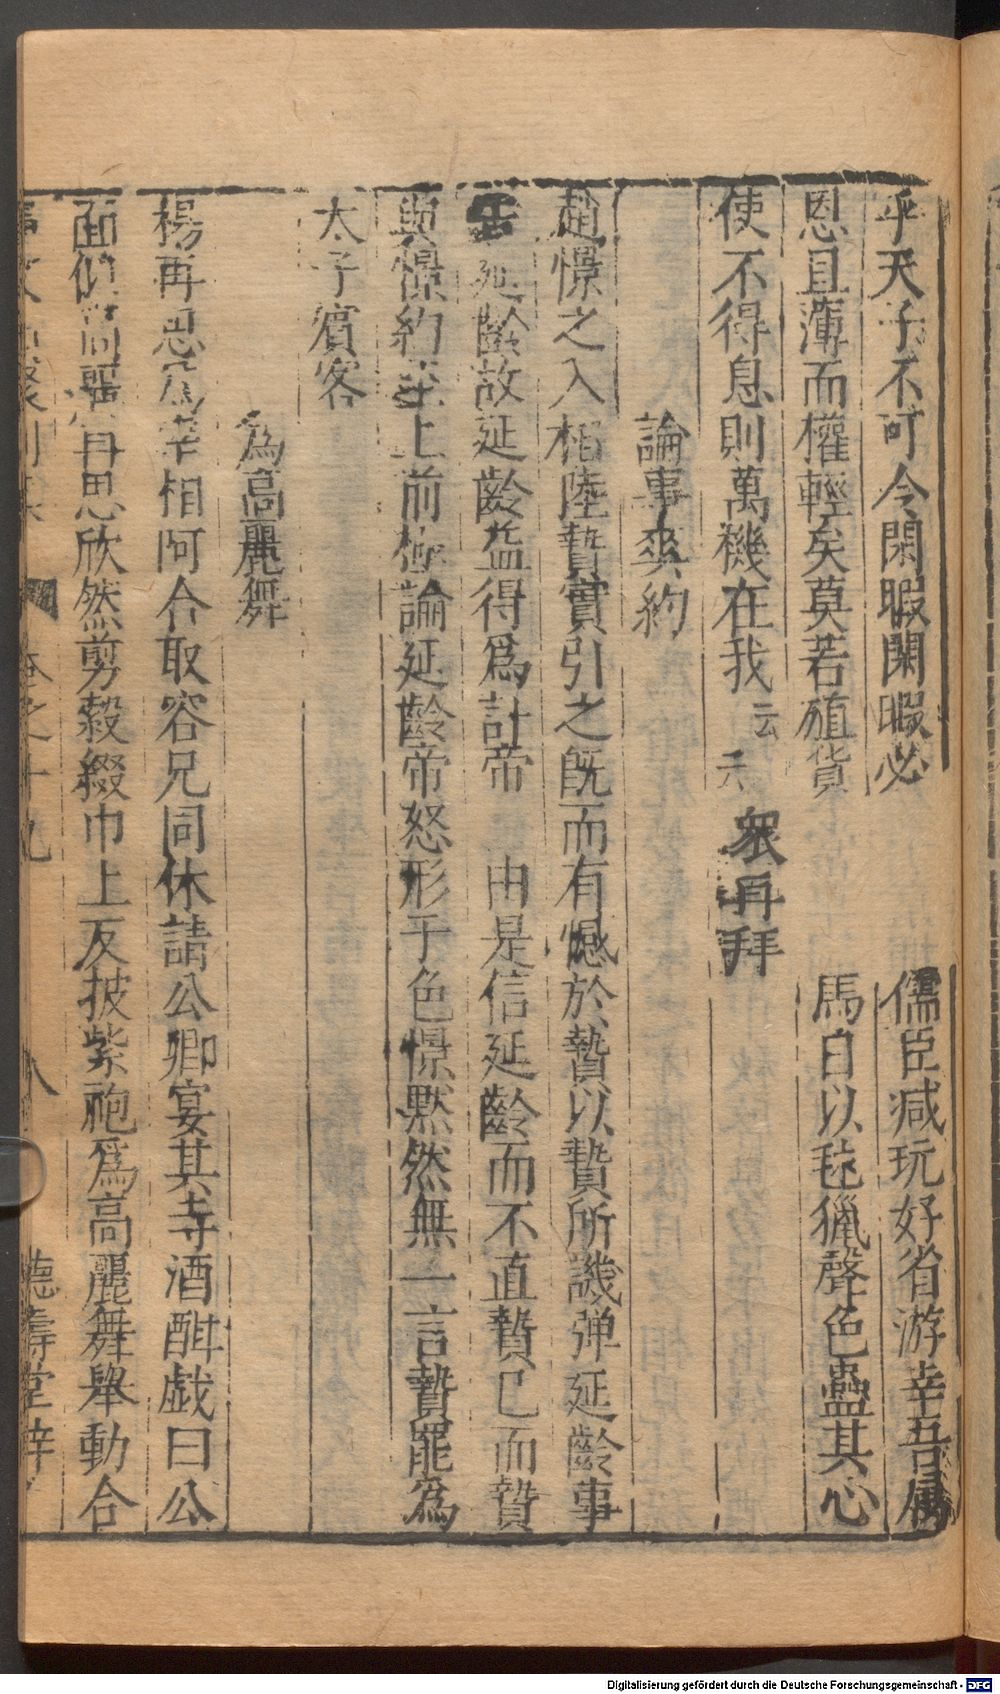 乎天子不可令閑暇閑暇必　　儒臣减玩好省游幸吾儕
恩且薄而權輕矣莫若殖貨　　馬日以毬獵聲色蠱其心
使不得息則萬機在我云云　衆再拜
論事爽約
趙憬之入相陸贄實引之既而有憾於贄以贄所譏弹延齡事
告延齡故延齡益得爲計帝　由是信延齡而不直贄已而贄
與憬約至上前極論延齡帝怒形于色憬黙然無一言贄罷爲
太子賓客
爲高麗舞
楊再思爲宰相阿合取容兄同休請公卿宴其寺酒酣戯曰公
面似高麗再思欣然剪縠綴巾上反披紫袍爲高麗舞舉動合
事文類聚別集　卷之十九　八　德壽堂梓
Digitalisierung gefördert durch die Deutsche Forschungsgemeinschaft - DFG